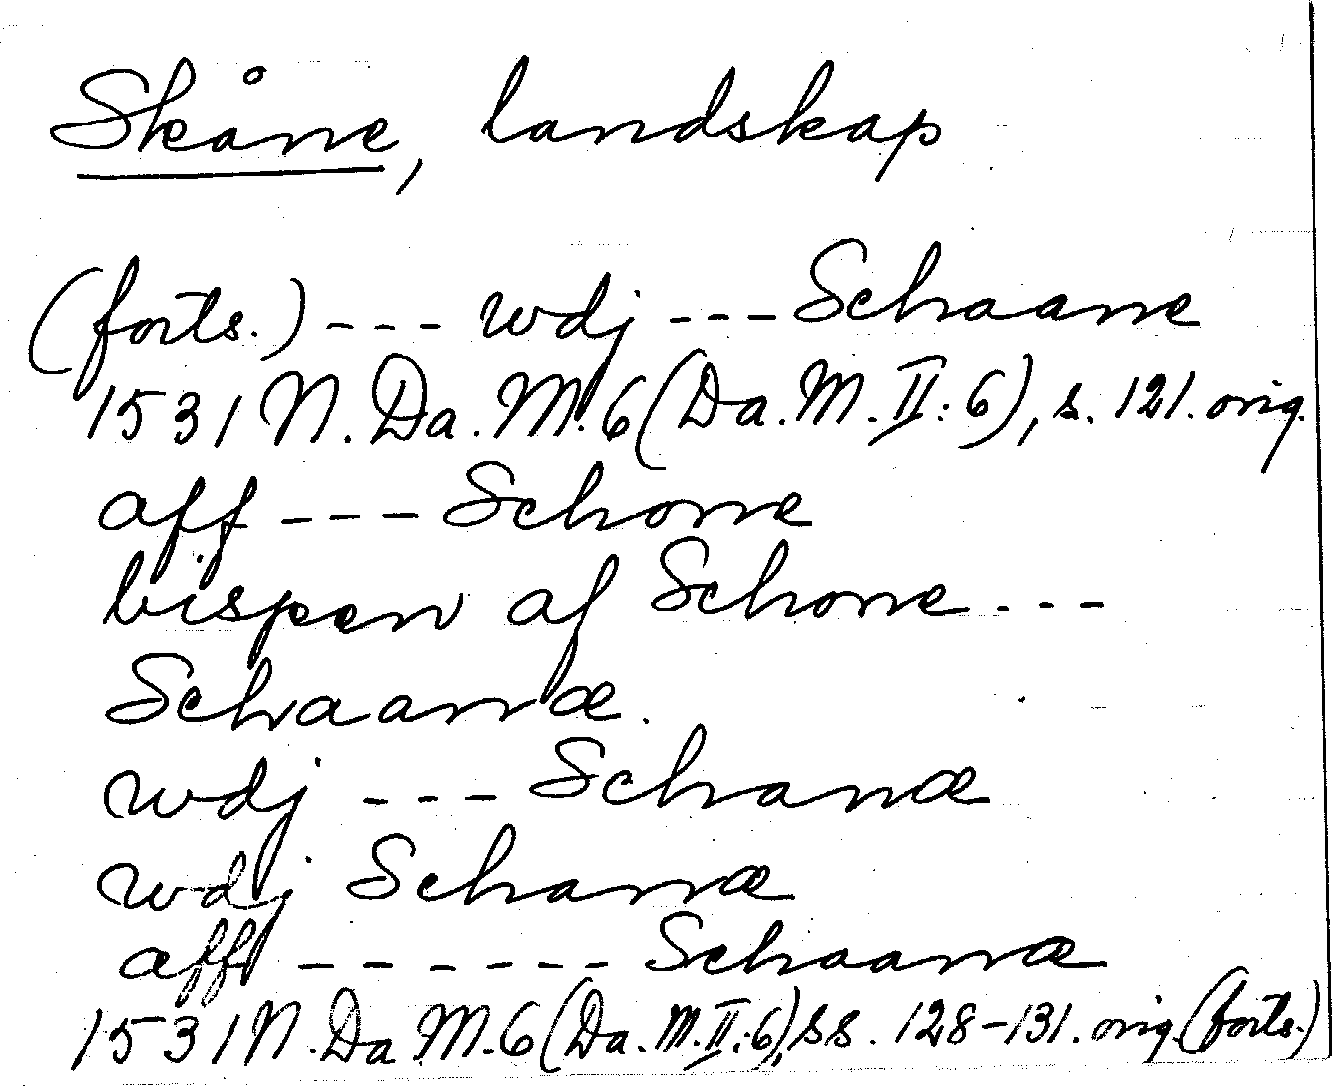 Skåne, landskap
(forts.) --- wdj --- Schaane
1531 N. Da. M. 6 (Da. M. II: 6), s. 121. orig.
aff --- Schone
bispen af Schone ---
Schaanæ.
wdj --- Schanæ
wdj Schanæ
aff ------ Schaanæ
1531 N. Da M. 6 (Da. M. II: 6), ss. 128-131. orig. (forts.)